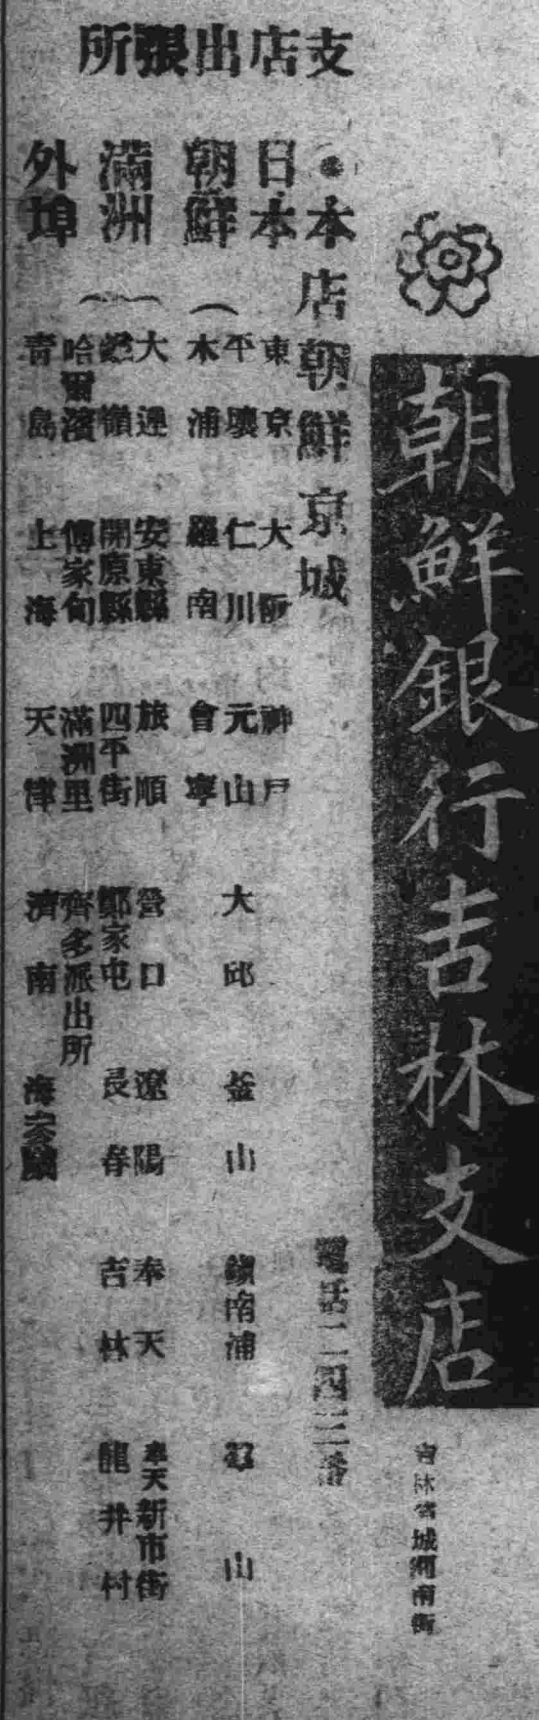 朝鮮銀行吉林支店
吉林省城湖南街
本店朝鮮京城
電話二四三番
支店出張所
日本
東京 大阪 神戶
朝鮮
平壤 仁川 元山 大邱 釜山 鎭南浦 群山
木浦 羅南 會寧
滿洲
大連 安東縣 旅順 營口 遼陽 奉天 奉天新市街
鐵嶺 開原縣 四平街 鄭家屯 長春 吉林 龍井村
哈爾濱 傅家甸 滿洲里 齊多派出所
外埠
靑島 上海 天津 濟南 海參